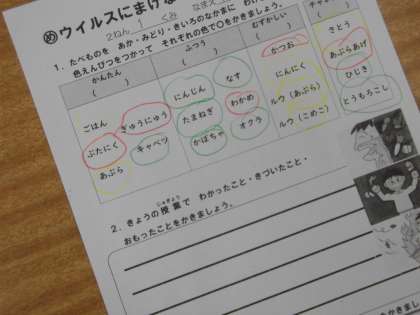 めウイルスにまけな
2ねん 1 くみ なまえ
1. たべものを あか・みどり・きいろのなかまに わけ
色えんぴつをつかって それぞれの色で○をかきましょう。
かんたん
( )
ふつう
( )
むずかしい
( )
( )
ごはん
ぎゅうにゅう
ぶたにく
キャベツ
あぶら
にんじん
なす
たまねぎ
わかめ
かぼちゃ
オクラ
かつお
にんにく
ルウ(あぶら)
ルウ(こめこ)
さとう
あぶらあげ
ひじき
とうもろこし
2. きょうの授業で わかったこと・きづいたこと・
じゅぎょう
おもったことをかきましょう。